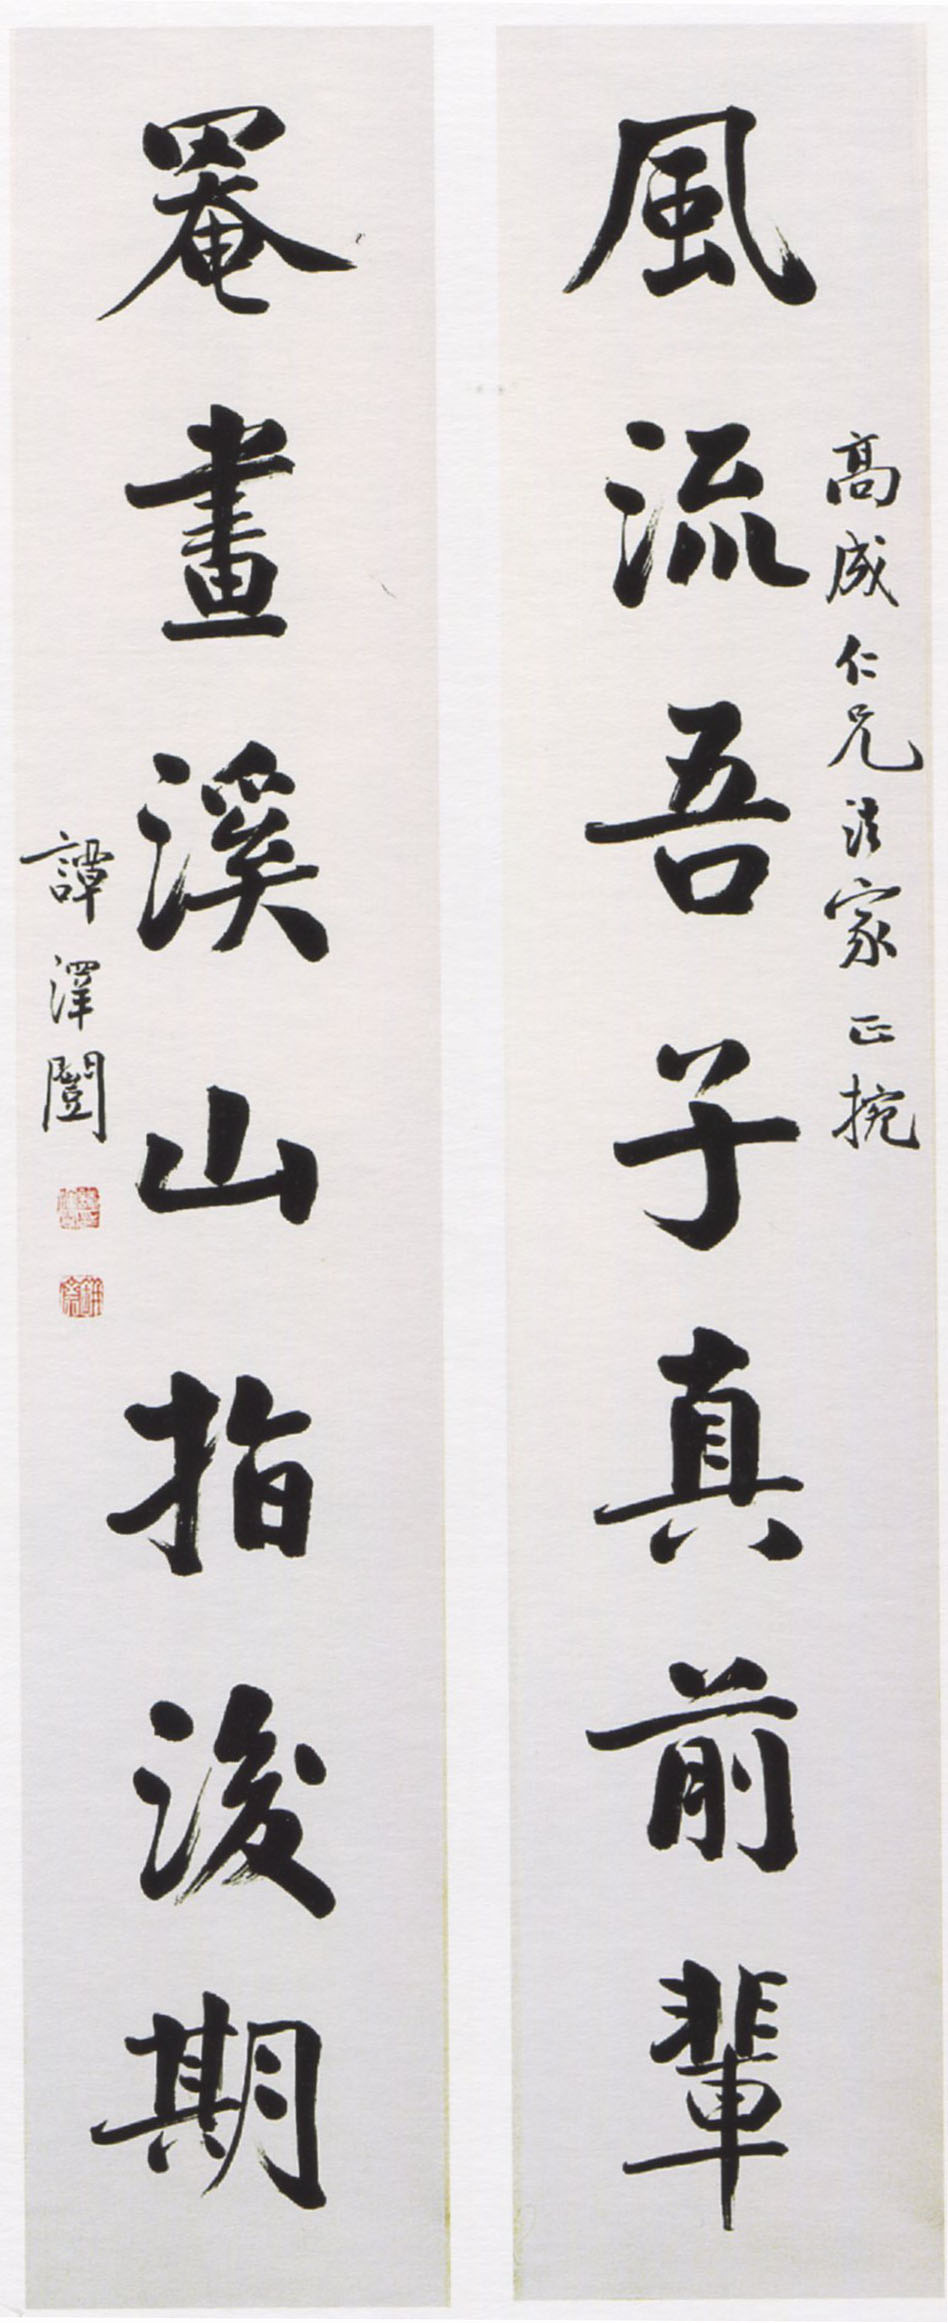 高成仁兄法家正捥
風流吾子真前輩
罨畫溪山指後期
譚澤闓